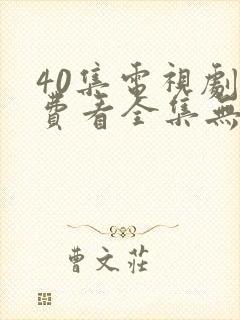 40集電視劇
費看全集無
曹文莊